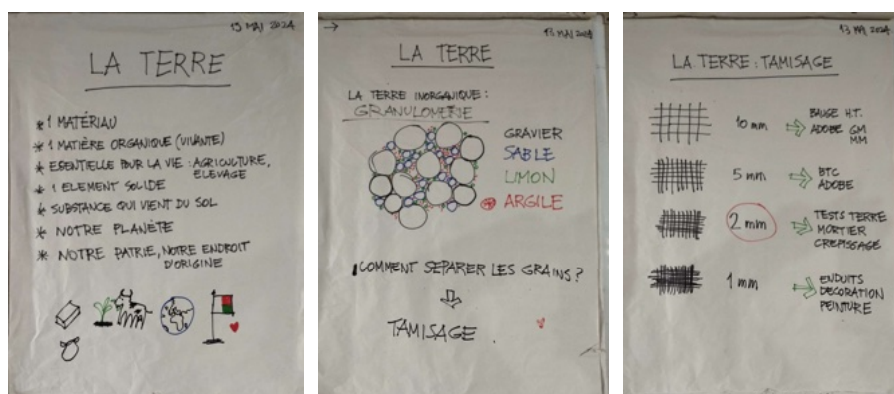 13 MAI 2024
LA TERRE
* 1 MATÉRIAU
* 1 MATIÈRE ORGANIQUE (VIVANTE)
* ESENTIELLE POUR LA VIE : AGRICULTURE,
ELEVAGE
* 1 ELEMENT SOLIDE
* SUBSTANCE QUI VIENT DU SOL
* NOTRE PLANÈTE
* NOTRE PATRIE, NOTRE ENDROIT
D'ORIGINE
→ 13 MAI 2024
LA TERRE
LA TERRE INORGANIQUE :
GRANULOMERIE
GRAVIER
SABLE
LIMON
ARGILE
COMMENT SEPARER LES GRAINS ?
TAMISAGE
13 MAI 2024
LA TERRE : TAMISAGE
10 mm ⇒ BAUGE H.T.
ADOBE GM
MM
5 mm ⇒ BTC
ADOBE
2 mm ⇒ TESTS TERRE
MORTIER
CREPISSAGE
1 mm ⇒ ENDUITS
DECORATION
PEINTURE